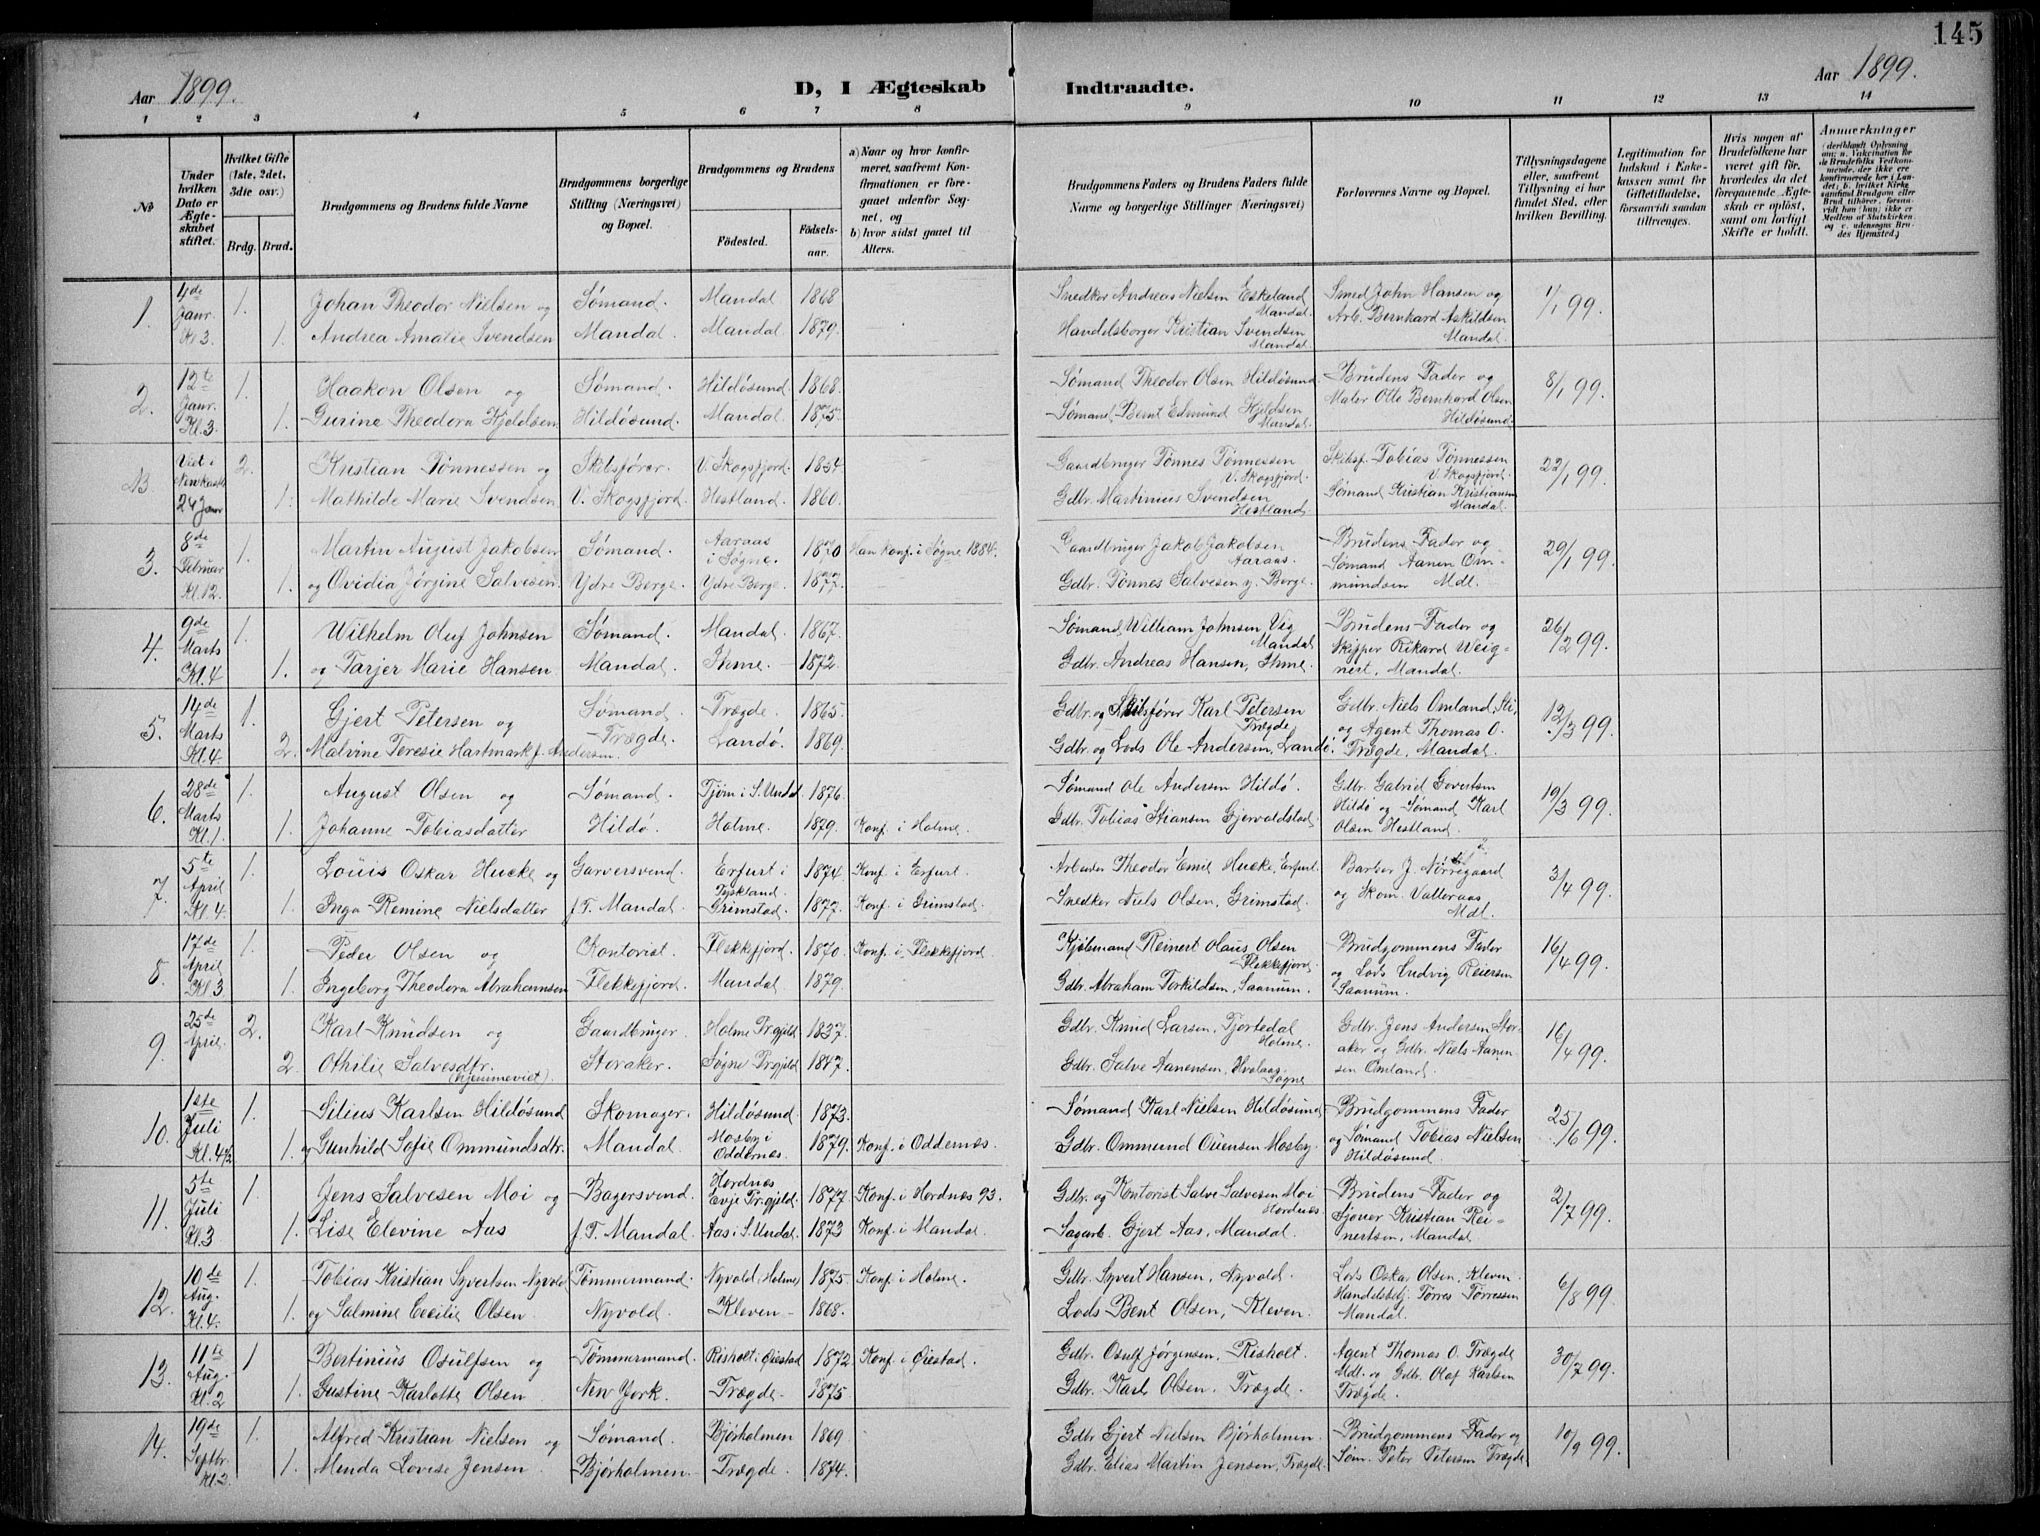 145
Aar 1899.
D, I Ægteskab Indtraadte.
Aar 1899.
1 2 3 4 5 6 7 8 9 10 11 12 13 14
№
Under hvilken Dato er Ægteskabet stiftet.
Hvilket Gifte (1ste, 2det, 3die osv.)
Brdg. Brud.
Brudgommens og Brudens fulde Navne
Brudgommens borgerlige Stilling (Næringsvei) og Bopæl.
Brudgommens og Brudens
Fødested. Fødselsaar.
a) Naar og hvor konfirmeret, saafremt Konfirmationen er foregaaet udenfor Sognet, og
b) hvor sidst gaaet til Alters.
Brudgommens Faders og Brudens Faders fulde Navne og borgerlige Stillinger (Næringsvei)
Forlovernes Navne og Bopæl.
Tillysningsdagene eller, saafremt Tillysning ei har fundet Sted, efter hvilken Bevilling.
Legitimation for Indskud i Enkekassen samt for Giftetilladelse, forsaavidt saadan tiltrænges.
Hvis nogen af Brudefolkene har været gift før, hvorledes da det foregaaende Ægteskab er opløst, samt om lovligt Skifte er holdt.
Anmærkninger (deriblandt Oplysning om: a. Vakcination for de Brudefolks Vedkommende, der ikke ere konfirmerede her i Landet; b. hvilket Kirkesamfund Brudgom eller Brud tilhører, forsaavidt han (hun) ikke er Medlem af Statskirken og c. udensogns Brudes Hjemsted.)
1. 4de Janr. Kl. 3. 1. Johan Theodor Nielsen og Sømand. Mandal 1868 Snedker Andreas Nielsen Eskeland Mandal. Smed John Hansen og 1/1 99.
1. Andrea Amalie Svendsen Mandal. Mandal 1879. Handelsborger Kristian Svendsen Mandal Arb. Bernhard Askildsen Mandal.
2. 12te Janr. Kl. 3. 1. Haakon Olsen og Sømand. Hildøsund 1868. Sømand Theodor Olsen Hildøsund Brudens Fader og 8/1 99.
1. Gurine Theodora Kjeldsen Hildøsund. Mandal 1875. Sømand Bernt Edmund Kjeldsen Mandal Maler Otto Bernhard Olsen Hildøsund
Viet i Newkastle 24 Janr 2. Kristian Tønnessen og Skibsfører. V. Skogsfjord. 1854. Gaardbruger Tønnes Tønnessen V. Skogsfjord. Skibsf. Tobias Tønnessen V. Skogsfjord. 22/1 99.
1. Mathilde Marie Svendsen V. Skogsfjord. Hestland. 1860. Gdbr. Martinius Svendsen Hestland Sømand Kristian Kristiansen Mandal.
3. 8de Februar Kl. 12. 1. Martin August Jakobsen Sømand. Aaraas i Søgne. 1870 Han konf. i Søgne 1884. Gaardbruger Jakob Jakobsen Aaraas. Brudens Fader og 29/1 99.
1. og Ovidia Jørgine Salvesen. Ydre Berge. Ydre Berge. 1877. Gdbr. Tønnes Salvesen y. Berge. Sømand Aanen Ommundsen Mdl.
4. 9de Marts Kl. 4 1. Wilhelm Oluf Johnsen Sømand. Mandal. 1867. Sømand William Johnsen Vig Mandal Brudens Fader og 26/2 99.
1. og Tarjer Marie Hansen Mandal. Ihme. 1872. Gdbr. Andreas Hansen, Ihme. Skipper Rikard Weignert, Mandal.
5. 14de Marts Kl. 4. 1. Gjert Petersen og Sømand. Trægde. 1865. Gdbr. og Skibsfører Karl Petersen Trægde Gdbr. Niels Omland, 12/3 99.
2. Malvine Teresie Hartmark f. Andersen. Trægde. Landø. 1869. Gdbr. og Lods Ole Andersen, Landø. og Agent Thomas O. Trægde, Mandal.
6. 28de Marts Kl. 1. 1. August Olsen og Sømand. Tjøm i S. Undal 1876. Sømand Ole Andersen Hildø. Gdbr. Gabriel Govertsen 19/3 99.
1. Johanne Tobiasdatter Hildø. Holme. 1879. Konf. i Holme. Gdbr. Tobias Stiansen Gjervoldstad. Hildø og Sømand Karl Olsen Hestland.
7. 5te April Kl. 4. 1. Louis Oskar Hucke og Garversvend. Erfurt i Tyskland. 1874. Konf. i Erfurt. Arbeider Theodor Emil Hucke, Erfurt Barber J. Nørregaard 3/4 99.
1. Inga Remine Nielsdatter f. T. Mandal. Grimstad. 1877. Konf. i Grimstad. Snedker Niels Olsen, Grimstad. og Skom. Valleraas Mdl.
8. 17de April Kl. 3 1. Peder Olsen og Kontorist. Flekkefjord. 1870. Konf. i Flekkefjord. Kjøbmand Reinert Olaus Olsen Flekkefjord. Brudgommens Fader 16/4 99.
1. Ingeborg Theodora Abrahamsen Flekkefjord. Mandal 1879. Gdbr. Abraham Torkildsen, Saanum. og Lods Ludvig Reiersen Saanum.
9. 25de April. 2. Karl Knudsen og Gaardbruger. Holme Prgjeld 1837. Gdbr. Knud Larsen, Tjortedal Holme Gdbr. Jens Andersen Storaker og 16/4 99.
2. Othilie Salvesdtr. (hjemmeviet). Storaker. Søgne Prgjeld 1847. Gdbr. Salve Aanensen, Søgne Gdbr. Niels Aanensen Omland.
10. 1ste Juli Kl. 4½ 1. Silius Karlsen Hildøsund Skomager. Hildøsund 1873. Sømand Karl Nielsen Hildøsund Brudgommens Fader 25/6 99.
1. og Gunhild Sofie Ommundsdtr. Mandal. Mosby i Oddernes. 1879. Konf. i Oddernes. Gdbr. Ommund Ouensen Mosby. og Sømand Tobias Nielsen Hildøsund.
11. 5te Juli Kl. 3 1. Jens Salvesen Moi og Bagersvend. Hordnes Evje Prgjeld. 1877. Konf. i Hordnes 93. Gdbr. og Kontorist Salve Salvesen Moi Hordnes Brudens Fader og 2/7 99.
1. Lise Elevine Aas f. T. Mandal. Aas i S. Undal. 1873 Konf. i Mandal. Sagarb. Gjert Aas, Mandal. Kristian Reinertsen, Mandal
12. 10de Aug. Kl. 4. 1. Tobias Kristian Syvertsen Nyvold Tømmermand. Nyvold, Holme 1875. Konf. i Holme. Gdbr. Syvert Hansen, Nyvold. Lods Oskar Olsen, Kleven 6/8 99.
1. og Salmine Cecilie Olsen. Nyvold. Kleven 1868. Lods Bent Olsen, Kleven. Handelsbetj. Tørres Tørressen Mandal.
13. 11te Aug. Kl. 2 1 Bertinius Osulfsen og Tømmermand. Risholt i Øiestad 1872. Konf. i Øiestad. Gdbr. Osulf Jørgensen, Risholt. Agent Thomas O. Trægde 30/7 99.
1. Gustine Karlotte Olsen New York. Trægde. 1875. Gdbr. Karl Olsen. Trægde. Mdl. og Gdbr. Olaf Karlsen Trægde.
14. 19de Septbr. Kl. 3. 1. Alfred Kristian Nielsen og Sømand. Bjørholmen 1869 Gdbr Gjert Nielsen Bjørholmen. Brudgommens Fader og 10/9 99.
1. Menda Lovise Jensen Bjørholmen. Trægde. 1874. Gdbr. Elias Martin Jensen, Trægde. Søm. Peter Petersen Trægde